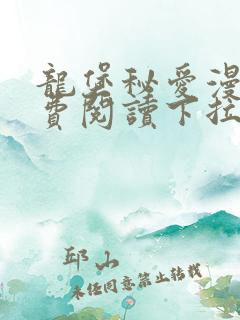 龍堡秘愛漫
費閱讀下拉
邱山
未經同意禁止轉載